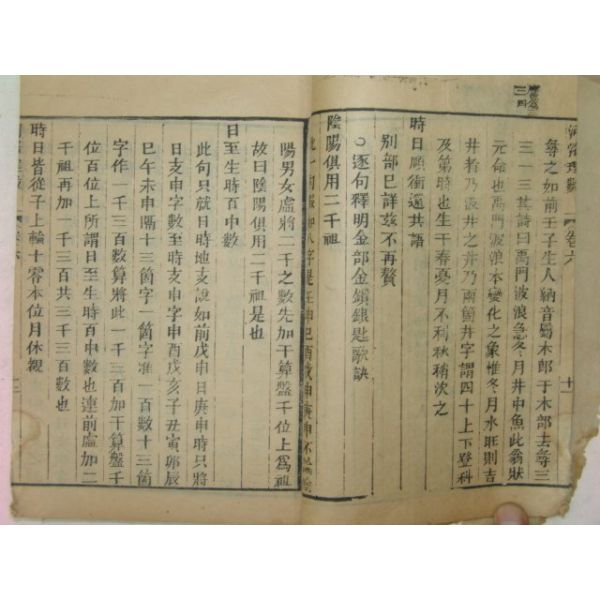 河洛理數 卷六 十一
尋之如前壬子生人納音屬木郎于木部去尋三
三一三其詩曰禹門波浪急冬月井中魚此翁狀
元命也禹門波浪本變化之象惟冬月水旺則吉
井者乃浪井之井乃兩箇井字謂四十上下登科
及第時也生于春夏月不利秋稍次之
時日順衝還共語
別部巳詳玆不再贅
○逐句釋明金部金鎖銀匙歌訣
陰陽俱用二千祖
此一句假如八字是壬申己酉戊申庚申不論陰
陽男女虛將二千之數先加于算盤千位上爲祖
故曰陰陽俱用二千祖是也
日至生時百中數
此句只就日時地支說如前戊申日庚申時只將
日支申字數至時支申字申酉戌亥子丑寅卯辰
巳午未申隔十三箇字一箇字准一百數十三箇
字作一千三百數算將此一千三百加于算盤千
位百位上所謂日至生時百中數也連前虛加二
千祖再加一千三百共三千三百數也
時日皆從子上輪十零本位月休親